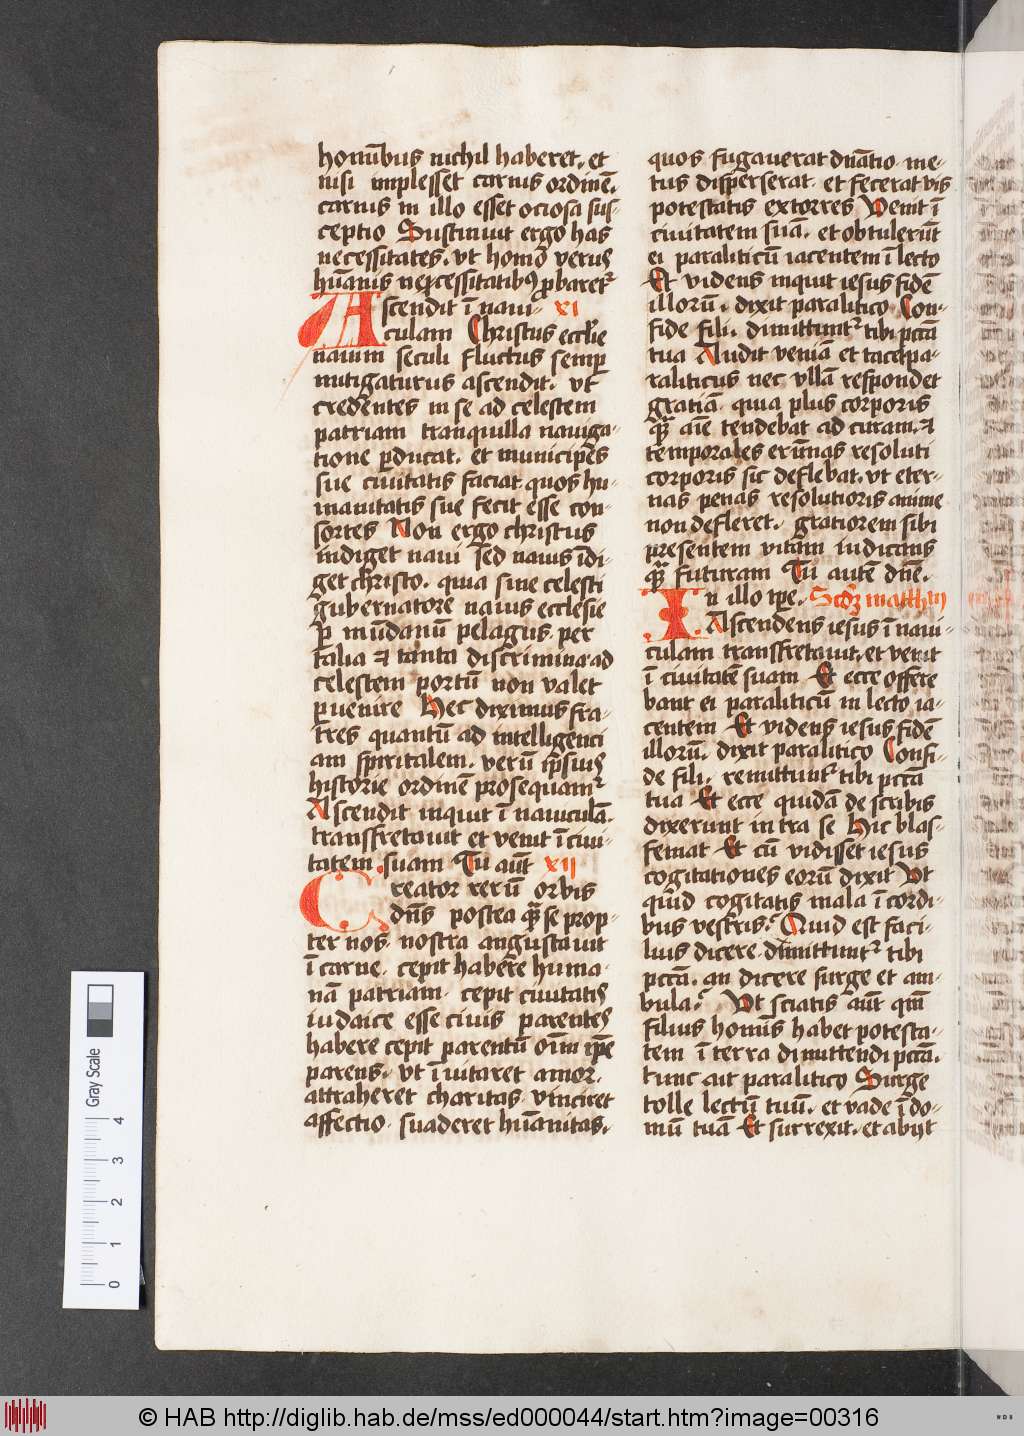 homībus nichil haberet. et
nisi implesset carnis ordinē.
carnis in illo esset ociosa sus-
ceptio Sustinuit ergo has
necessitates. vt homo verus
hūanis necessitatibꝰ ꝓbaretᷣ
Ascendit ī naui- xi
culam Christus ecclīe
nauim seculi fluctus semꝑ
mitigaturus ascendit. vt
credentes in se ad celestem
patriam tranquilla nauiga-
tione ꝑducat. et municipes
sue ciuitatis faciat quos hu-
manitatis sue fecit esse con-
sortes Non ergo christus
indiget naui Sed nauis īdi-
get christo. quia sine celesti
gubernatore nauis ecclesie
ꝑ mūdanū pelagus per
talia ⁊ tanta discrimina ad
celestem portū non valet
ꝑuenire Hec diximus fra-
tres quantū ad intelligenci
am spiritalem. verū ip̄sius
historie ordinē prosequamᷣ
Ascendit inquit ī nauiculā.
transfretauit et venit ī ciui-
tatem suam Tu aūt xii
Creator rerū orbis
dn̄s postea qͣꝫ se prop-
ter nos nostra angustauit
ī carne. cepit habere huma-
nā patriam. cepit ciuitatis
iudaice esse ciuis parentes
habere cepit parentū oīm ip̄e
parens. vt īuitaret amor.
attraheret charitas vinciret
affectio. suaderet hūanitas.
quos fugauerat dn̄atio. me-
tus disperserat. et fecerat vis
potestatis extorres Venit ī
ciuitatem suā. et obtulerūt
ei paraliticū iacentem ī lecto
Et videns inquit iesus fidē
illorū. dixit paralitico Con-
fide fili. dimittuntᷣ tibi pctā
tua Audit veniā et tacet pa-
raliticus nec vllā respondet
gratiā. quia plus corporis
qͣꝫ aīe tendebat ad curam. ⁊
temporales erūnas resoluti
corporis sic deflebat. vt eter-
nas penas resolutioris anime
non defleret. gratiorem sibi
presentem vitam iudicans
qͣꝫ futuram Tu autē dn̄e.
In illo tpe. Scḋꝫ mattheū
Ascendens iesus ī naui-
culam transfretauit. et venit
ī ciuitatē suam Et ecce offere
bant ei paraliticū in lecto ia-
centem Et videns iesus fidē
illorū. dixit paralitico Confi-
de fili. remittuntᷣ tibi pctā
tua Et ecce quidā de scribis
dixerunt intra se Hic blas-
femat Et cū vidisset iesus
cogitationes eorū dixit Vt
quid cogitatis mala ī cordi-
bus vestris? Quid est faci-
lius dicere dimittuntᷣ tibi
pctā. an dicere surge et am-
bula? Vt sciatis aūt qm̄
filius homīs habet potesta-
tem ī terra dimittendi pctā.
tunc ait paralitico Surge
tolle lectū tuū. et vade ī do-
mū tuā Et surrexit. et abijt
Gray Scale
0 1 2 3 4
© HAB http://diglib.hab.de/mss/ed000044/start.htm?image=00316